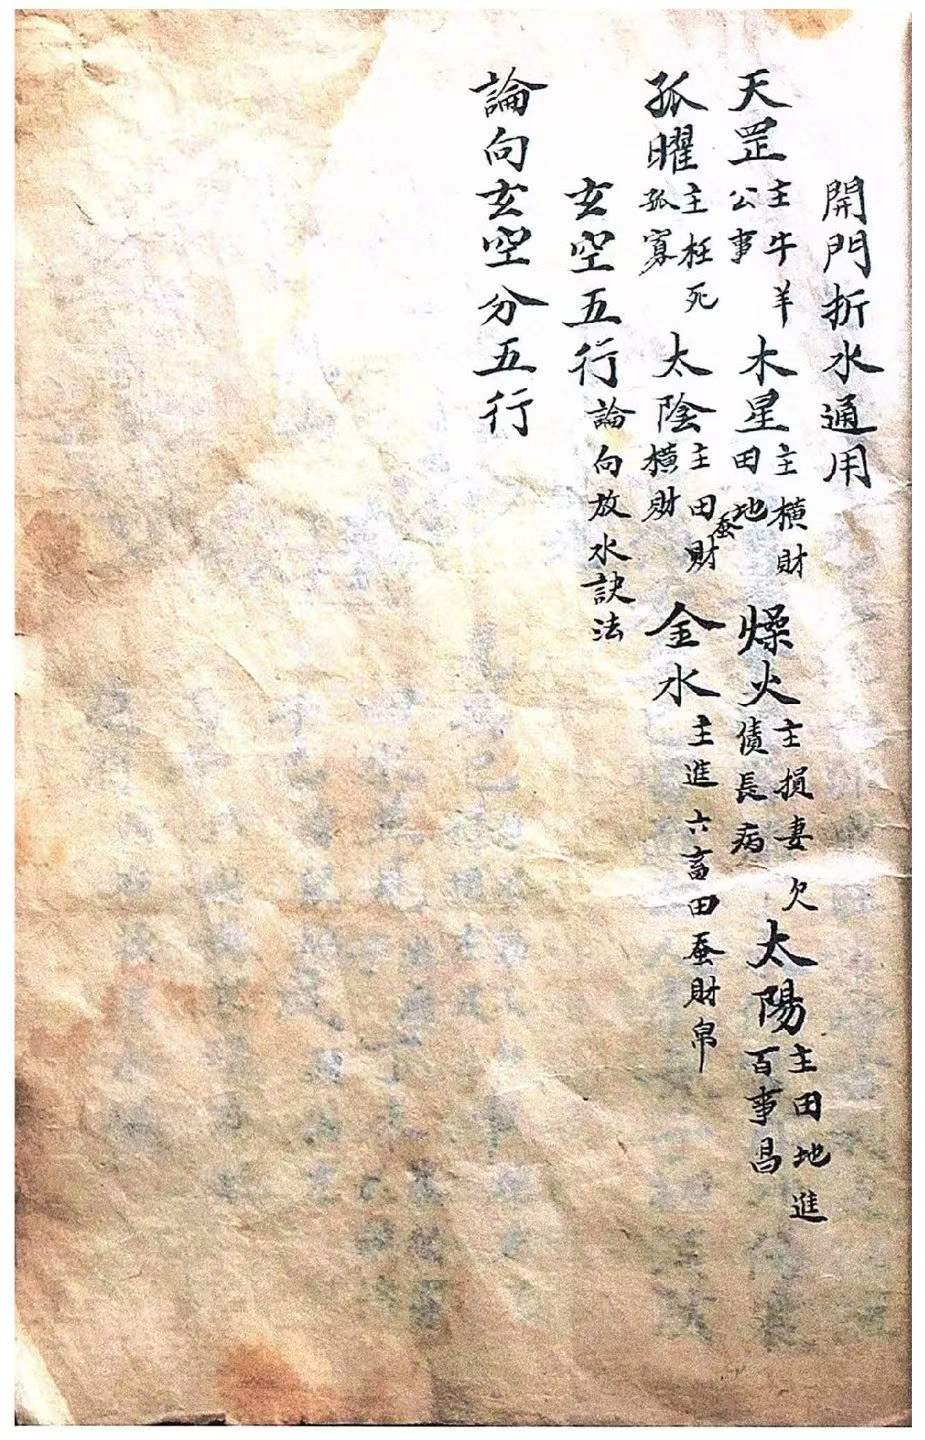 開門折水通用
天罡主牛羊公事 木星主横財田地 燥火主損妻欠債長病 太陽主田地進百事昌
孤曜主枉死孤寡 太陰主田蚕財横財 金水主進六畜田蚕財帛
玄空五行論向放水訣法
論向玄空分五行